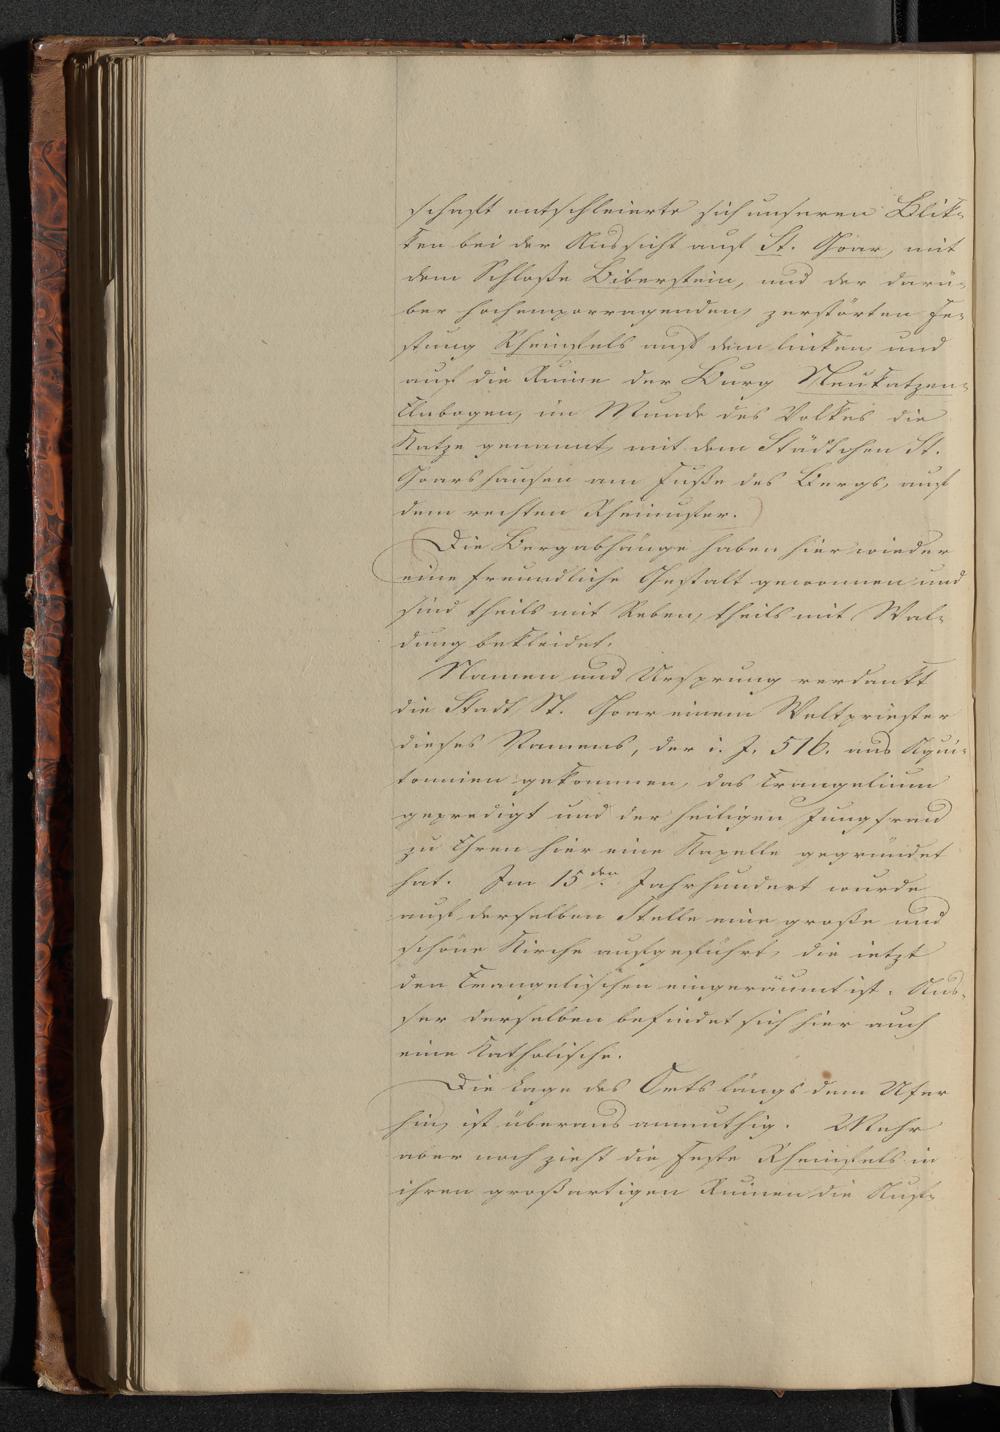 schaft entschleierte sich unseren Blik-
ken bei der Aussicht auf St. Goar, mit
dem Schloße Biberstein, und der darü-
ber hochemporragenden zerstörten Fe-
stung Rheinfels auf dem linken und
auf die Ruine der Burg Neukatzen-
elnbogen, im Munde des Volkes die
Katze genannt, mit dem Städtchen St.
Goarshausen am Fuße des Bergs, auf
dem rechten Rheinufer.
Die Bergabhänge haben hier wieder
eine freundliche Gestalt gewonnen und
sind theils mit Reben, theils mit Wal-
dung bekleidet.
Namen und Ursprung verdankt
die Stadt St. Goar einem Weltpriester
dieses Namens, der i. J. 516. aus Aqui-
tannien gekommen, das Evangelium
gepredigt und der heiligen Jungfrau
zu Ehren hier eine Kapelle gegründet
hat. Im 15den Jahrhundert wurde
auf derselben Stelle eine große und
schöne Kirche aufgeführt, die ietzt
den Evangelischen eingeräumt ist. Aus-
ser derselben befindet sich hier auch
eine Katholische.
Die Lage des Orts längs dem Ufer
hin, ist überaus anmuthig. Mehr
aber noch zieht die Feste Rheinfels in
ihren großartigen Ruinen die Auf-